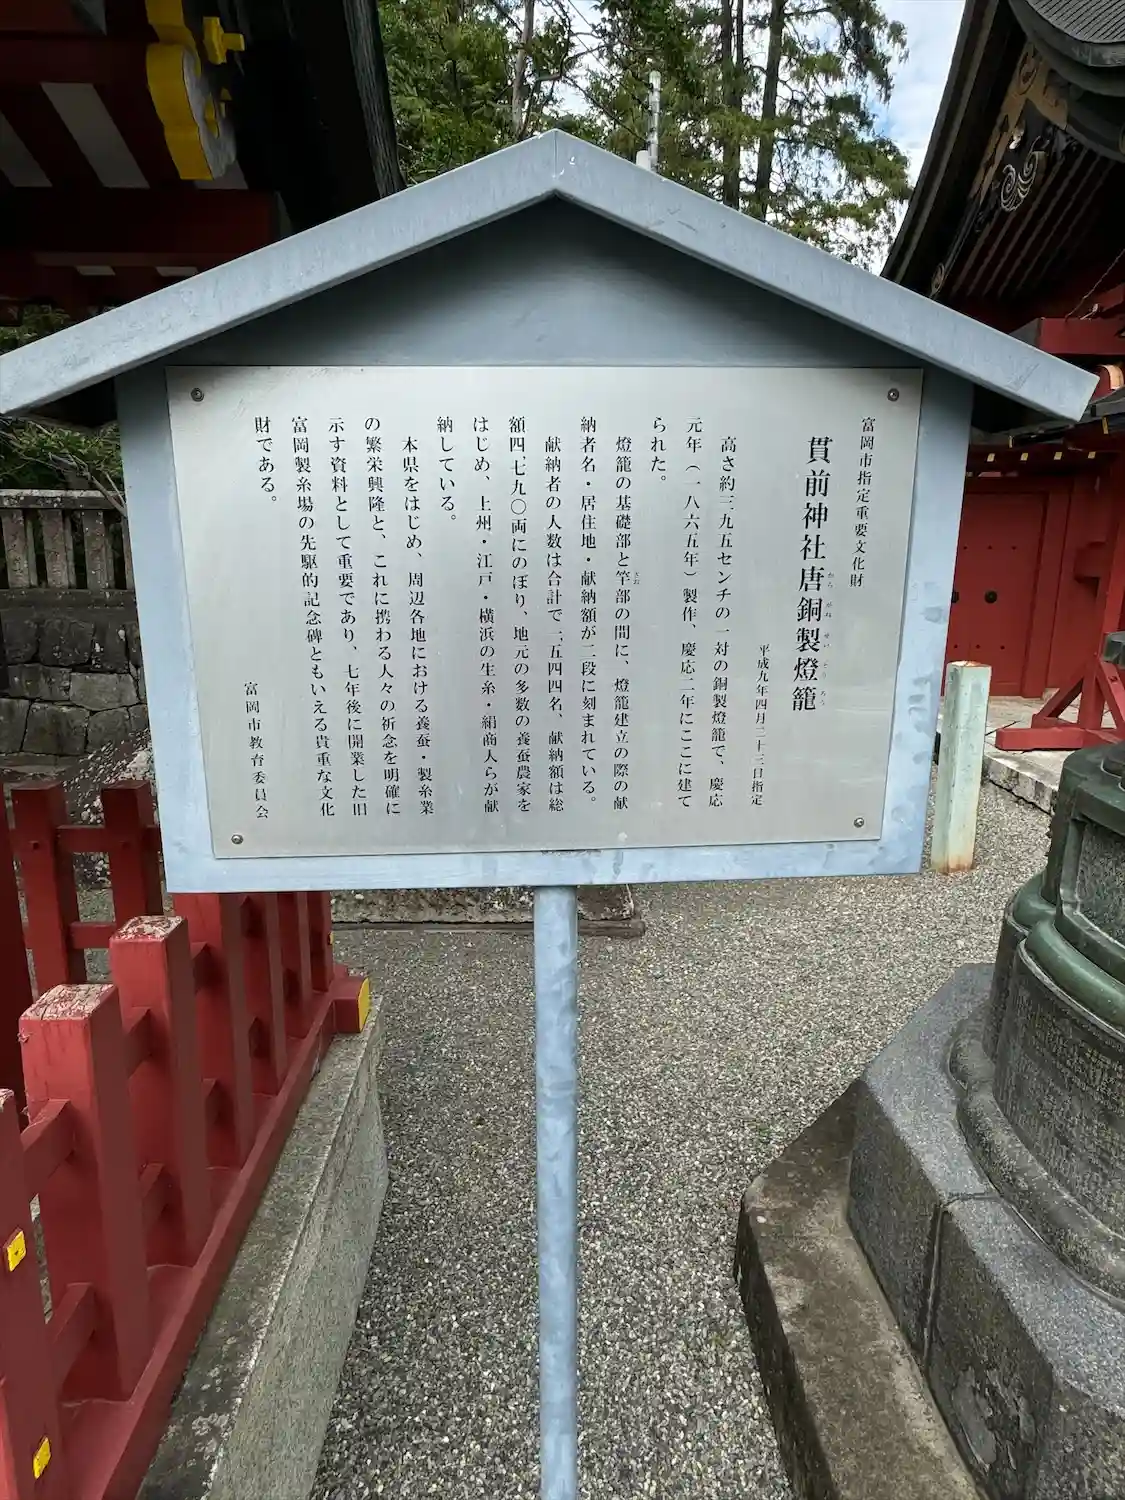 富岡市指定重要文化財
貫前神社唐銅製燈籠
から がね せい とうろう
平成九年四月二十三日指定
高さ約三九五センチの一対の銅製燈籠で、慶応
元年(一八六五年)製作、慶応二年にここに建て
られた。
燈籠の基礎部と竿部の間に、燈籠建立の際の献
さお
納者名・居住地・献納額が二段に刻まれている。
献納者の人数は合計で一、五四四名、献納額は総
額四七九〇両にのぼり、地元の多数の養蚕農家を
はじめ、上州・江戸・横浜の生糸・絹商人らが献
納している。
本県をはじめ、周辺各地における養蚕・製糸業
の繁栄興隆と、これに携わる人々の祈念を明確に
示す資料として重要であり、七年後に開業した旧
富岡製糸場の先駆的記念碑ともいえる貴重な文化
財である。
富岡市教育委員会